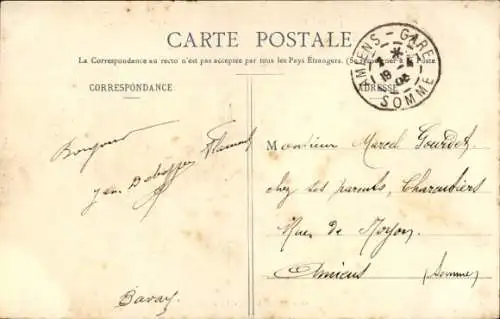 CARTE POSTALE
La Correspondance au recto n'est pas acceptée par tous les Pays Étrangers. (Se à la Poste
CORRESPONDANCE
ADRESSE
AMIENS - GARE
SOMME
Bonjour
Jean
Bavay
Monsieur Marcel Gourdet
chez ses parents, Charcutiers
Rue de Noyon
Amiens (Somme)